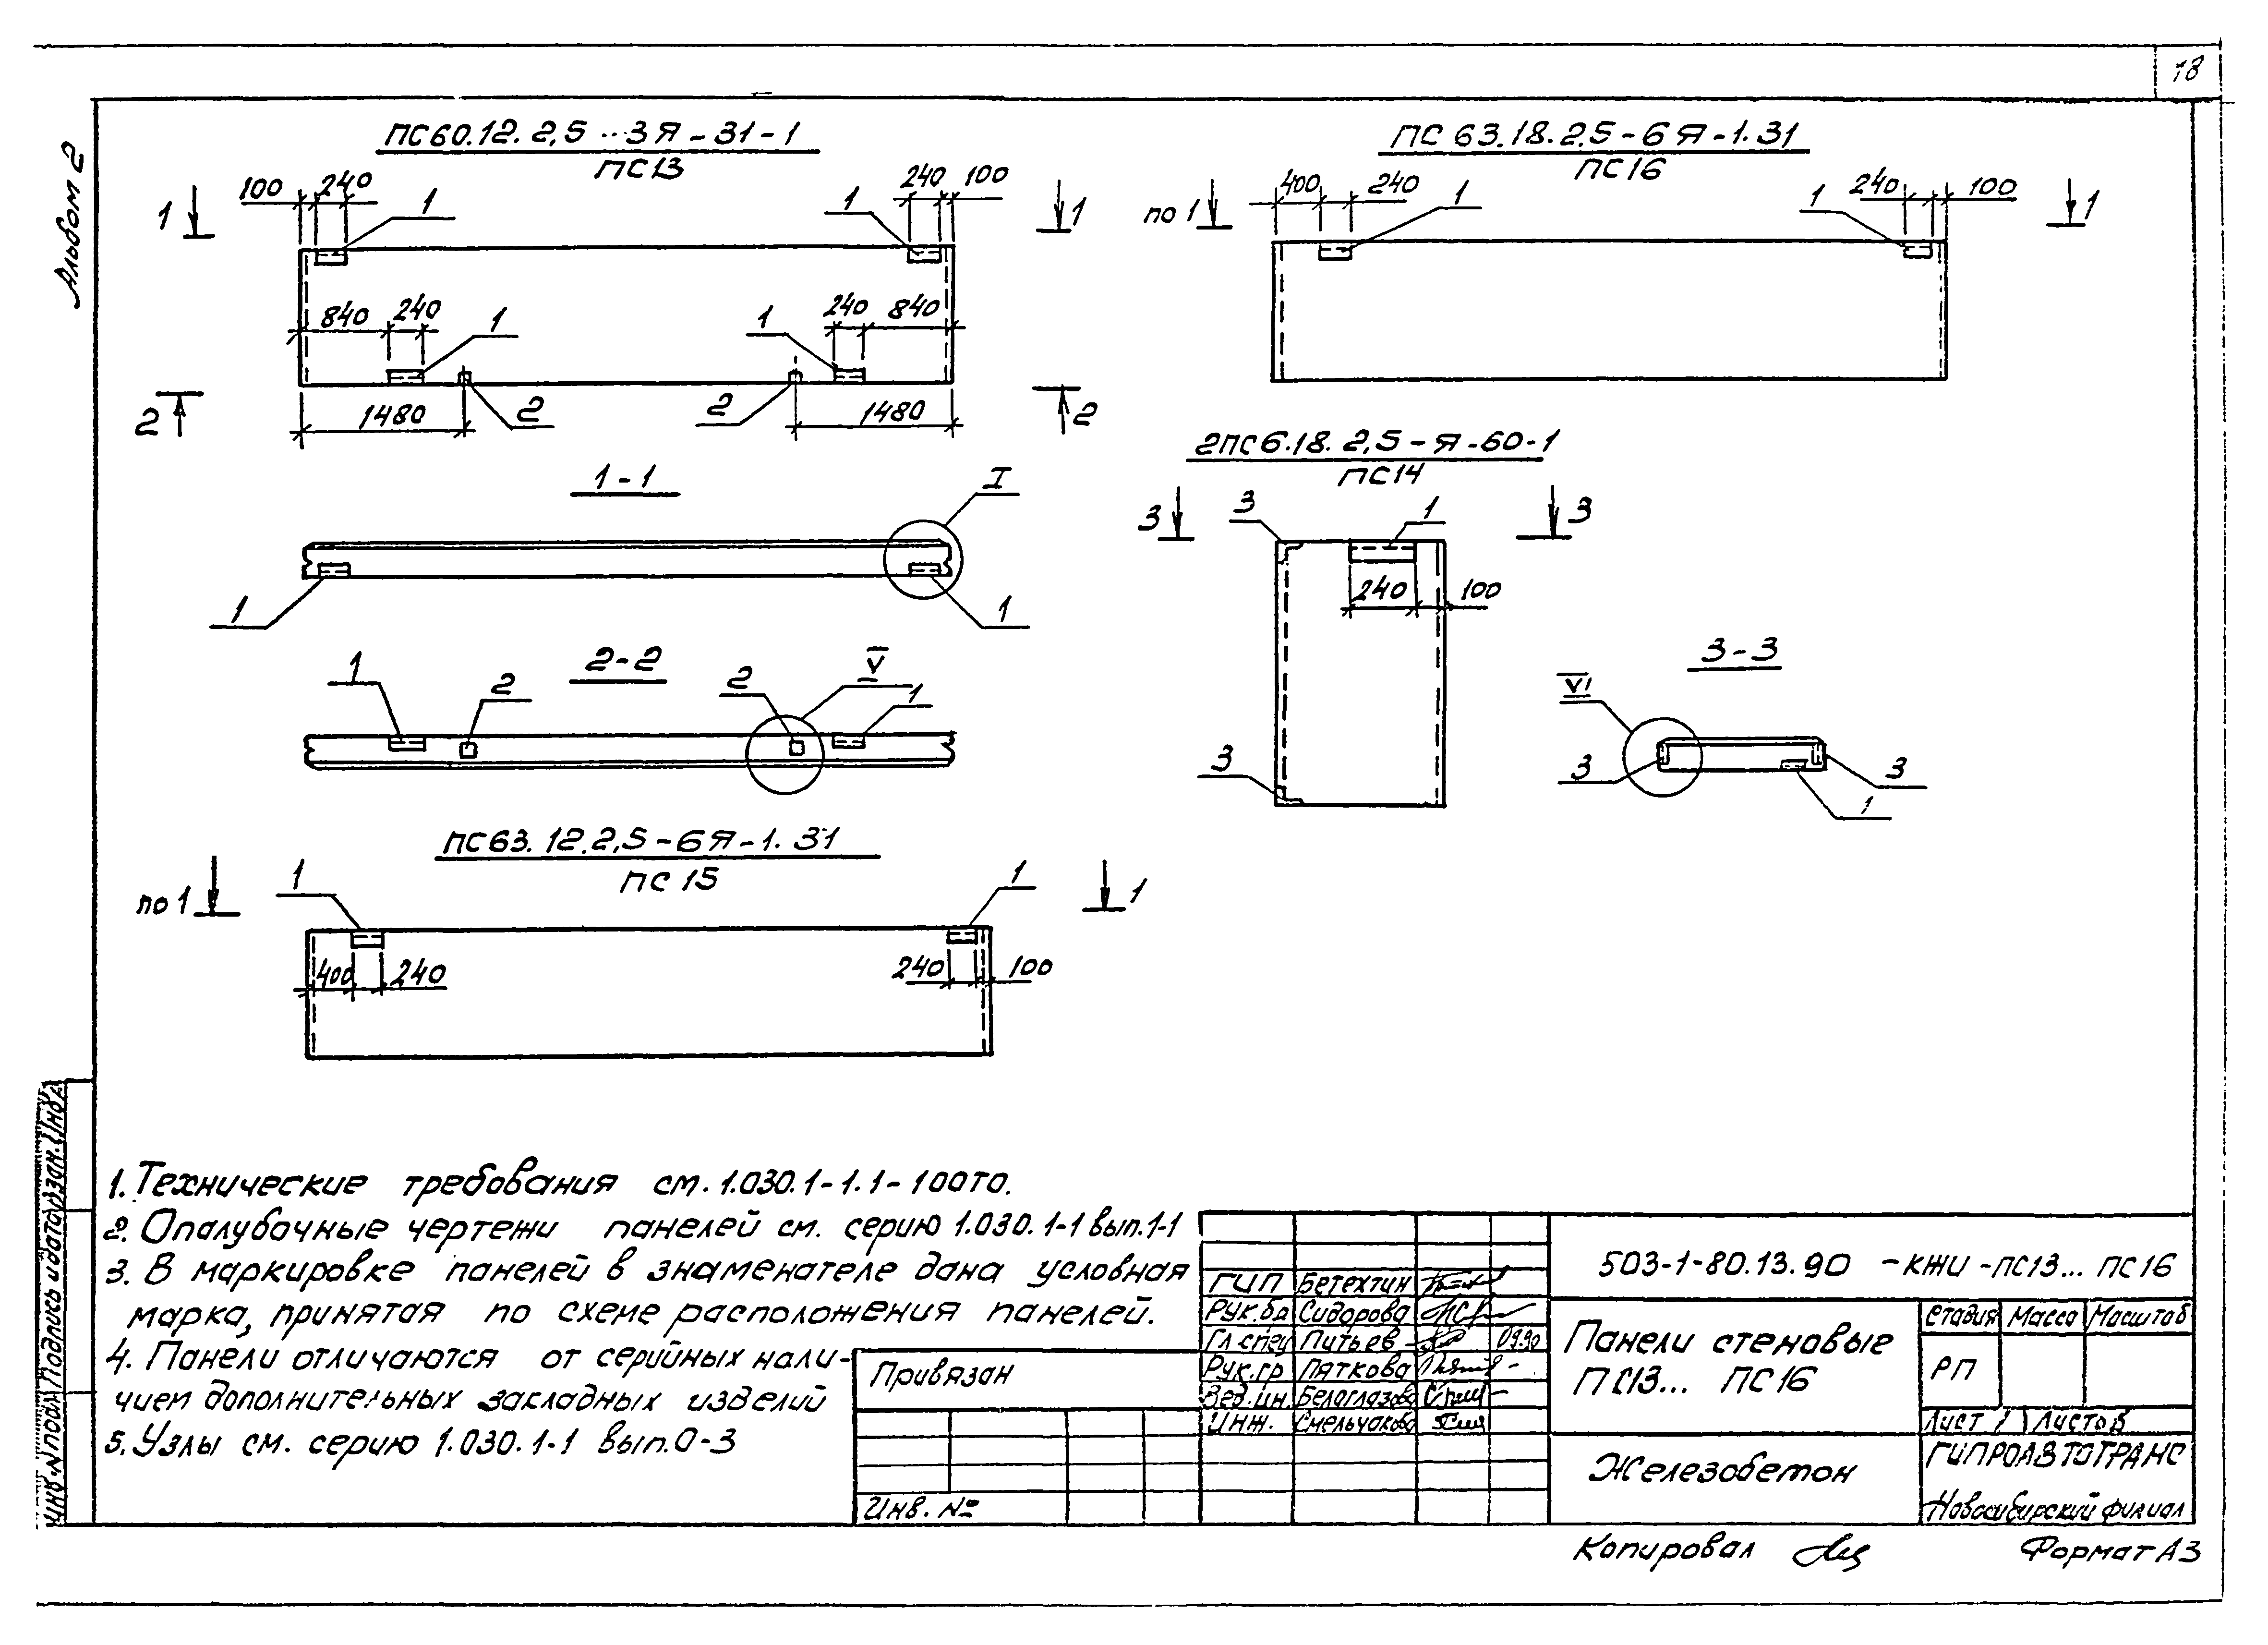 18
Альбом 2
ПС60.12.2,5-3Я-31-1
ПС13
100 240 1
1 240 100
1 1
840 240 1
1 240 840
2 1480 2
2 1480 2
1-1
I
1 1
2-2
V
1 2 2 1
ПС63.12.2,5-6Я-1.31
ПС15
по 1 1 1 1
400 240 240 100
ПС63.18.2,5-6Я-1.31
ПС16
400 240 1 1 240 100
по 1 1
2ПС6.18.2,5-Я-60-1
ПС14
3 3 1 3
240 100
3
3-3
VI
3 3
1
1. Технические требования см. 1.030.1-1.1-100ТО.
2. Опалубочные чертежи панелей см. серию 1.030.1-1 вып.1-1
3. В маркировке панелей в знаменателе дана условная
марка, принятая по схеме расположения панелей.
4. Панели отличаются от серийных нали-
чием дополнительных закладных изделий
5. Узлы см. серию 1.030.1-1 вып.0-3
Инв.№подл Подпись и дата Взам.Инв№
Привязан
Инв. №
ГИП Бетехтин
Рук.бр Сидорова
Гл.спец Питьев 09.90
Рук.гр Пяткова
Вед.ин. Белоглазова
Инж. Смельчакова
503-1-80.13.90 -КЖИ-ПС13... ПС16
Панели стеновые
ПС13... ПС16
Стадия Масса Масштаб
РП
Лист 1 Листов
Железобетон
ГИПРОАВТОТРАНС
Новосибирский филиал
Копировал
Формат А3